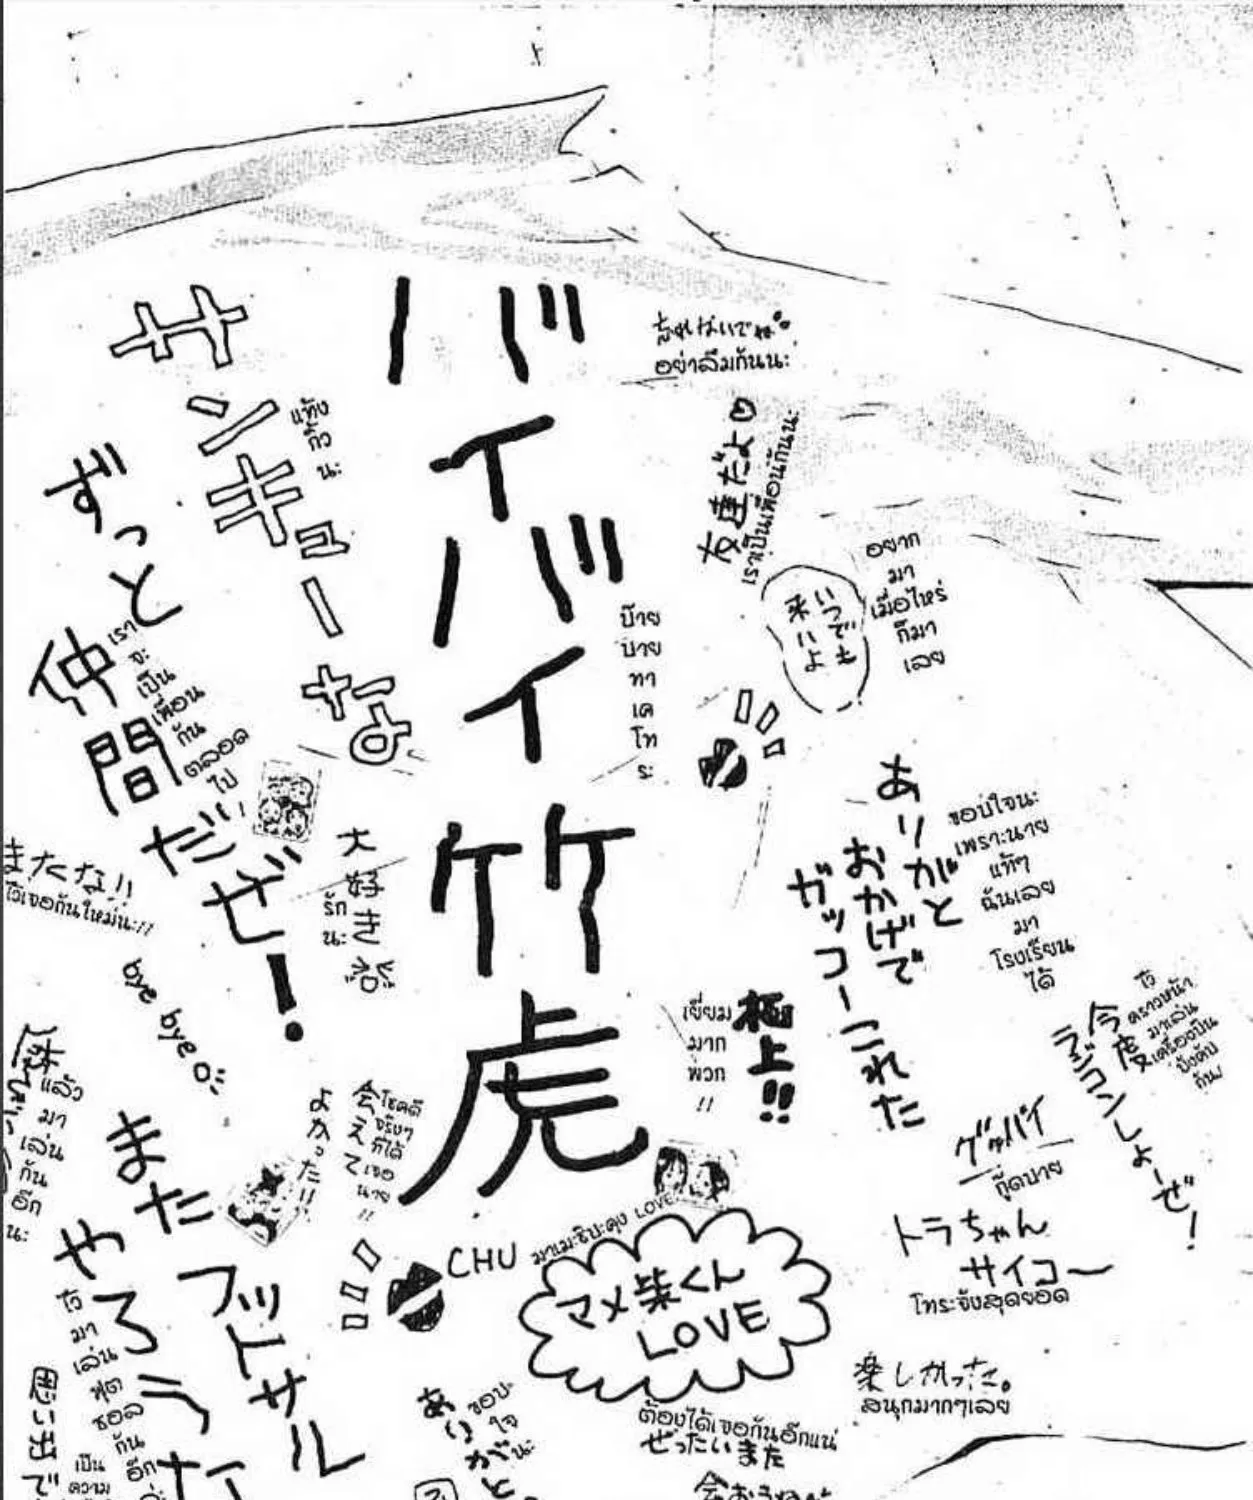 バイバイ竹虎
บ๊าย
บาย
ทา
เค
โท
ระ
サンキューな
แท้ง
กิ้ว
นะ
ずっと仲間だぜ!
เรา
จะ
เป็น
เพื่อน
กัน
ตลอด
ไป
อย่าลืมกันนะ
友達だよ
เราเป็นเพื่อนกันนะ
いつでも
来いよ
อยาก
มา
เมื่อไหร่
ก็มา
เลย
ありがと
おかげで
ガッコーこれた
ขอบใจนะ
เพราะนาย
แท้ๆ
ฉันเลย
มา
โรงเรียน
ได้
大好き
รัก
นะ
またな!!
ไว้เจอกันใหม่นะ!!
bye bye
極上!!
เยี่ยม
มาก
พวก
!!
今度
ラジコンしよーぜ!
ไว้
คราวหน้า
มาเล่น
เครื่องบิน
บังคับ
กัน
グッバイ
กู๊ดบาย
トラちゃん
サイコー
โทระจังสุดยอด
会えて
よかった!!
โชคดี
จริงๆ
ที่ได้
เจอ
นาย
!!
แล้ว
มา
เล่น
กัน
อีก
นะ
また
フットサル
やろうな
ไว้
มา
เล่น
ฟุต
ซอล
กัน
อีก
CHU
มาเมะชิบะคุง LOVE
マメ柴くん
LOVE
楽しかった。
สนุกมากๆเลย
ありがと
ขอบ
ใจ
นะ
ต้องได้เจอกันอีกแน่
ぜったいまた
思い出で
เป็น
ความ